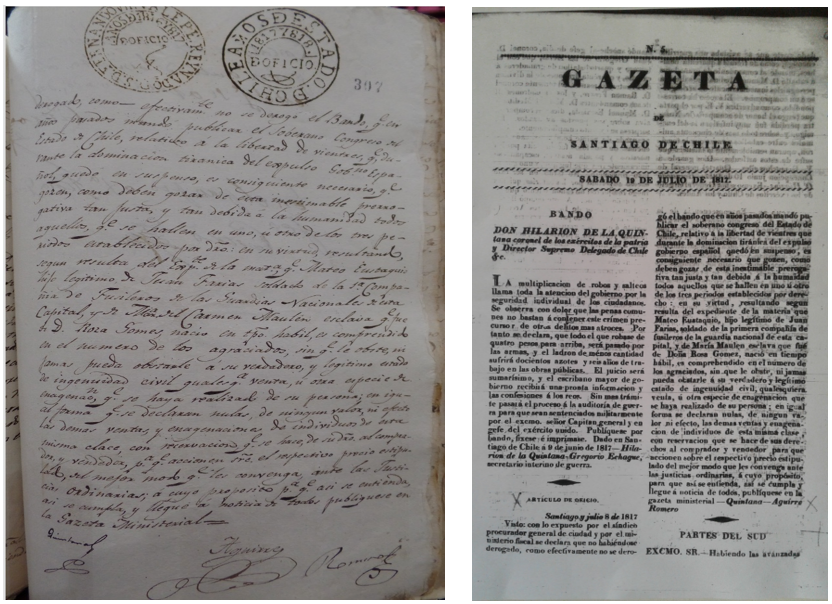 FERNANDO
D OFICIO
CHILE AMOS DE ESTADO D
1817 I 18
D OFICIO
307
derogado, como efectivamte. no se derogó el Bando, q.e en
años pasados mandó publicar el Soberano Congreso del
Estado de Chile, relativo á la libertad de vientres, q.e du-
rante la dominacion tiranica del expulso Gobno. Espa-
ñol, quedó en suspenso, es consiguiente necesario, q.e
gozen, como deben gozar de esta inestimable prerro-
gativa tan justa, y tan debida á la humanidad todos
aquellos, q.e se hallen en uno, ú otro de los tres pe-
riodos establecidos por dro: en su virtud, resultando,
segun resulta del Exp.te de la mata. q.e Mateo Eustaquio
hijo legitimo de Juan Farias Soldado de la 1a. Compa-
ñia de Fusileros de las Guardias Nacionales de esta
Capital, y de Ma. del Carmen Maulen esclava q.e fue
de Da. Rosa Gomes, nacio en tpo. habil, es comprendido
en el numero de los agraciados, sin q.e le obste, ni
jamas pueda obstarle á su verdadero, y legitimo estado
de ingenuidad civil qualesqa. venta, ú otra especie de
enagenacn. q.e se haya realizado de su persona; en igu-
al forma q.e se declaran nulas, de ningun valor, ni efecto
las demas ventas, y enagenaciones de individuos de esta
misma clase, con reservacion q.e se hace, de su dro. al compra-
dor, y vendedor, pa. q.e accionen sre. el respectivo precio estipu-
lado, del mejor modo q.e les convenga, ante las Justi-
cias ordinarias; á cuyo proposito, pa. q.e asi se entienda,
asi se cumpla, y llegue á noticia de todos publiquese en
la Gazeta Ministerial
Quintana
Aguirre
Romero
N. 5.
GAZETA
DE
SANTIAGO DE CHILE
SABADO 19 DE JULIO DE 1817.
BANDO
DON HILARION DE LA QUIN-
tana coronel de los exércitos de la patria
y Director Supremo Delegado de Chile
&c.
LA multiplicacion de robos y salteos
llama toda la atencion del gobierno por la
seguridad individual de los ciudadanos.
Se observa con dolor que las penas comu-
nes no bastan á contener este crimen pre-
cursor de otros delitos mas atroces. Por
tanto se declara, que todo el que robase de
quatro pesos para arriba, será pasado por
las armas, y el ladron de menos cantidad
sufrirá docientos azotes y seis años de tra-
bajo en las obras públicas. El juicio será
sumarísimo, y el escribano mayor de go-
bierno recibirá una pronta informacion y
las confesiones á los reos. Sin mas trámi-
te pasará el proceso á la auditoria de guer-
ra para que sean sentenciados militarmente
por el excmo. señor Capitan general y en
gefe del exército unido. Publíquese por
bando, fixese é imprímase. Dado en San-
tiago de Chile á 9 de junio de 1817—Hila-
rion de la Quintana-Gregorio Echague,
secretario interino de guerra.
ARTICULO DE OFICIO.
Santiago y julio 8 de 1817
Visto: con lo expuesto por el síndico
procurador general de ciudad y por el mi-
nisterio fiscal se declara que no habiéndose
derogado, como efectivamente no se dero-
gó el bando que en años pasados mandó pu-
blicar el soberano congreso del Estado de
Chile, relativo á la libertad de vientres que
durante la dominacion tiránica del expulso
gobierno español quedó en suspenso, es
consiguiente necesario que gozen, como
deben gozar de esta inestimable preroga-
tiva tan justa y tan debida á la humanidad
todos aquellos que se hallen en uno ú otro
de los tres períodos establecidos por dere-
cho: en su virtud, resultando segun
resulta del expediente de la materia que
Mateo Eustaquio, hijo legítimo de Juan
Farias, soldado de la primera compañía de
fusileros de la guardia nacional de esta ca-
pital, y de María Maulen esclava que fué
de Doña Rosa Gomez, nació en tiempo
hábil, es comprehendido en el número de
los agraciados, sin que le obste, ni jamas
pueda obstarle á su verdadero y legítimo
estado de ingenuidad civil, qualesquiera
venta, ú otra especie de enagenacion que
se haya realizado de su persona; en igual
forma se declaran nulas, de ningun va-
lor ni efecto, las demas ventas y enagena-
cion de individuos de esta misma clase,
con reservacion que se hace de sus dere-
chos al comprador y vendedor para que
accionen sobre el respectivo precio estipu-
lado del mejor modo que les convenga ante
las justicias ordinarias, á cuyo propósito,
para que asi se entienda, asi se cumpla y
llegue á noticia de todos, publíquese en la
gazeta ministerial—Quintana—Aguirre
Romero
PARTES DEL SUD
EXCMO. SR.—Habiendo las avanzadas